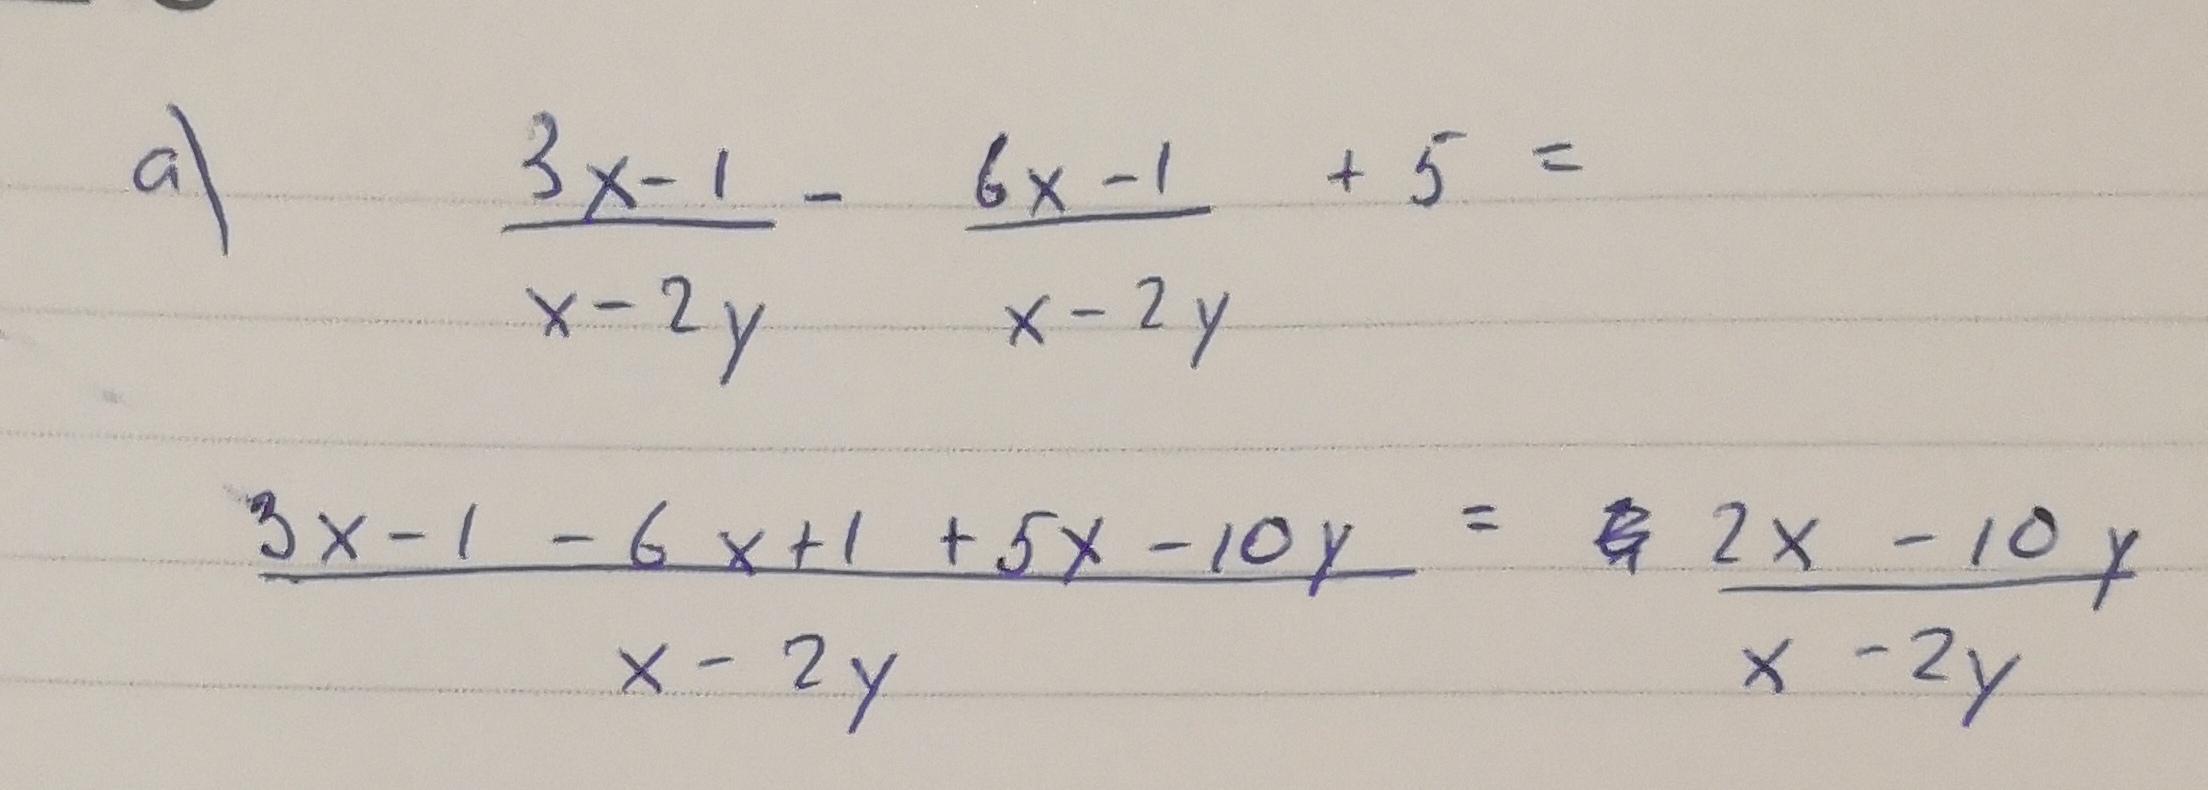 a) \frac{3x-1}{x-2y} - \frac{6x-1}{x-2y} + 5 =
\frac{3x-1-6x+1+5x-10y}{x-2y} = \frac{2x-10y}{x-2y}